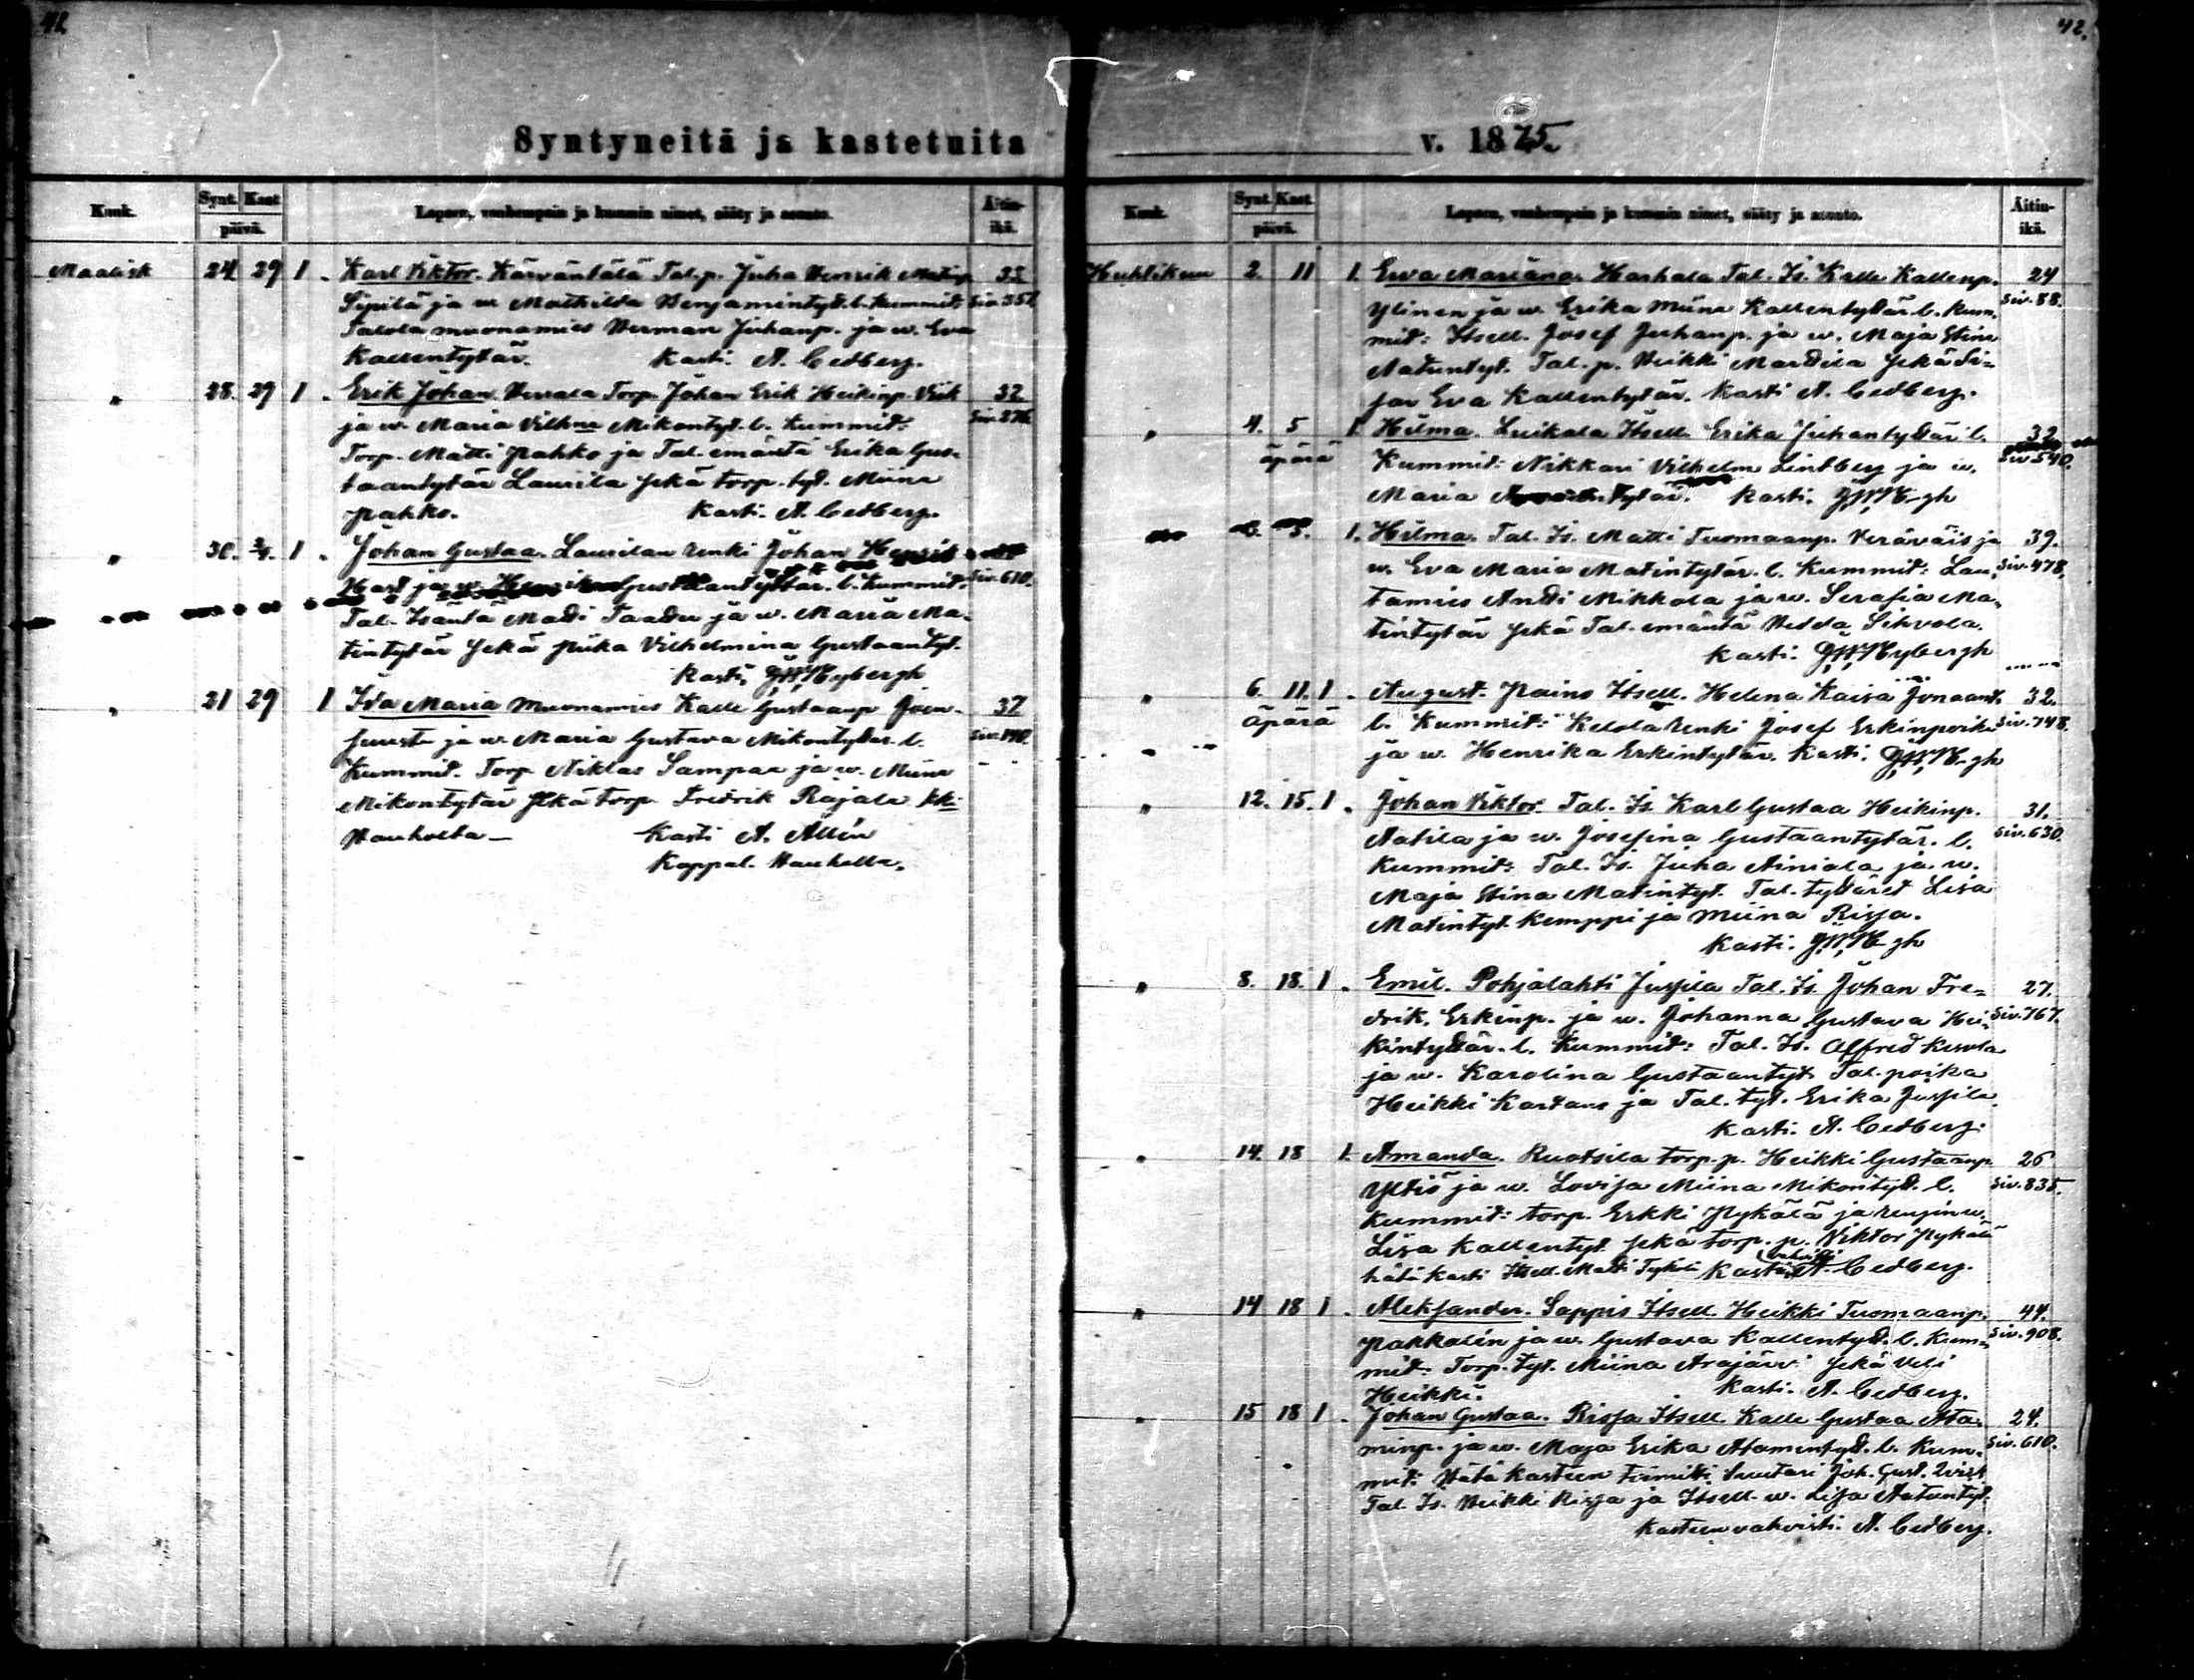 42
42.
Syntyneitä ja kastetuita
v. 1875.
Kuuk. Synt. Kast. päivä. Lapsen, vanhempain ja kummin nimet, sääty ja asunto. Äitin ikä.
Maalisk 24 29 1. Karl Viktor. Tal.p. Juha Henrik Matinp. 33
Sipilä ja w. Mathilda Benjamintyt. l. Kummit: Siv. 351.
Talola muonamies Herman Juhanp. ja w. Eva
Kallentytär. Kasti: A. Cedberg.
" 28. 29 1. Erik Johan. Torp. Johan Erik Heikinp. 32
ja w. Maria Vilhne Mikontyt. l. Kummit: Siv. 276
Torp. Matti Pahko ja Tal. emäntä Erika Gus-
taantytär Laurila sekä torp. tyt. Miina
Pahko. Kasti: A. Cedberg.
" 30. 2/4. 1. Johan Gustaa. Laurilan renki Johan Henrik
ja w. Gustaantyttär. l. Kummit: Siv. 610.
Tal. Isäntä Matti Taadu ja w. Maria Ma-
tintytär sekä piika Vilhelmina Gustaantyt.
Kasti: G.W. Nybergh
" 21 29 1 Ida Maria Muonamies Kalle Gustaanp
ja w. Maria Gustava Mikontytär l.
Kummit. Torp Niklas Sampar ja w. Miina
Mikontytär sekä torp. Fredrik Rajala
Hauholta — Kasti A. Allén
Kappal. Hauholla.
Kuuk. Synt. Kast. päivä. Lapsen, vanhempain ja kummin nimet, sääty ja asunto. Äitin-ikä.
Huhtikuu 2. 11 1. Ewa Mariana. Harhala Tal. Is. Kalle Kallenp. 24
Ylinen ja w. Erika Miina Kallentytär l. Kum- Siv. 88.
mit: Itsell. Josef Juhanp. ja w. Maja Stina
Tal. p. Heikki Mardila sekä Si-
sar Eva Kallentytär. Kasti A. Cedberg.
" 4. 5 1. Hilma. Luikala Itsell. Erika Juhantytär l. 32
äpärä Kummit: Nikkari Vilhelm Lindberg ja w. Siv 540.
Maria Kasti: G.W. N-gh
3. 5. 1. Hilma. Tal. Is. Matti Tuomaanp. ja 39.
w. Eva Maria Matintytär. l. Kummit: Lau- Siv. 478.
tamies Antti Mikkola ja w. Serafia Ma-
tintytär sekä Tal. emäntä Hedda Sihvola.
Kasti: G.W. Nybergh
" 6. 11. 1. August. Paino Itsell. Helena Kaisa Jonaant. 32.
äpärä l. Kummit: Kelola renki Josef Erkinpoika Siv. 748.
ja w. Henrika Erkintytär. Kasti: G.W. N-gh
" 12. 15. 1. Johan Viktor. Tal. Is. Karl Gustaa Heikinp. 31.
Aatila ja w. Josefina Gustaantytär. l. Siv. 630.
Kummit: Tal. Is. Juha Ainiala ja w.
Maja Stina Matintyt. Tal. tyttäret Lisa
Matintyt Kemppi ja Miina Rissa.
Kasti: G.W. N-gh
" 8. 18. 1. Emil. Pohjalahti Jussila Tal. Is. Johan Fre- 27.
drik. Erkinp. ja w. Johanna Gustava Hei- Siv. 767.
kintytär. l. Kummit: Tal. Is. Alfred
ja w. Karolina Gustaantyt. Tal. poika
Heikki ja Tal. tyt. Erika Jussila.
Kasti: A. Cedberg.
" 14. 18 1. Amanda. Ruotsila torp. p. Heikki Gustaanp. 26
Yltiö ja w. Lovisa Miina Mikontyt. l. Siv. 835.
Kummit: torp. Erkki Pykälä ja rengin w.
Lisa Kallentyt. sekä torp. p. Viktor Pykälä
hätä kasti Itsell. Matti Kasteen vahvisti A. Cedberg.
" 14 18 1. Aleksander. Sappis Itsell. Heikki Tuomaanp. 44.
Pakkalin ja w. Gustava Kallentyt. l. Kum- Siv. 908.
mit: Torp. tyt. Miina Arajärvi sekä Veli
Heikki. Kasti: A. Cedberg.
" 15 18 1. Johan Gustaa. Rissa Itsell. Kalle Gustaa Ata- 24.
minp. ja w. Maja Erika Atamintyt. l. Kum- Siv. 610.
mit: Hätä kasteen toimitti Suutari Joh. Gust.
Tal. Is. Heikki Rissa ja Itsell. w. Lisa Antuntyt.
Kasteen vahvisti: A. Cedberg.